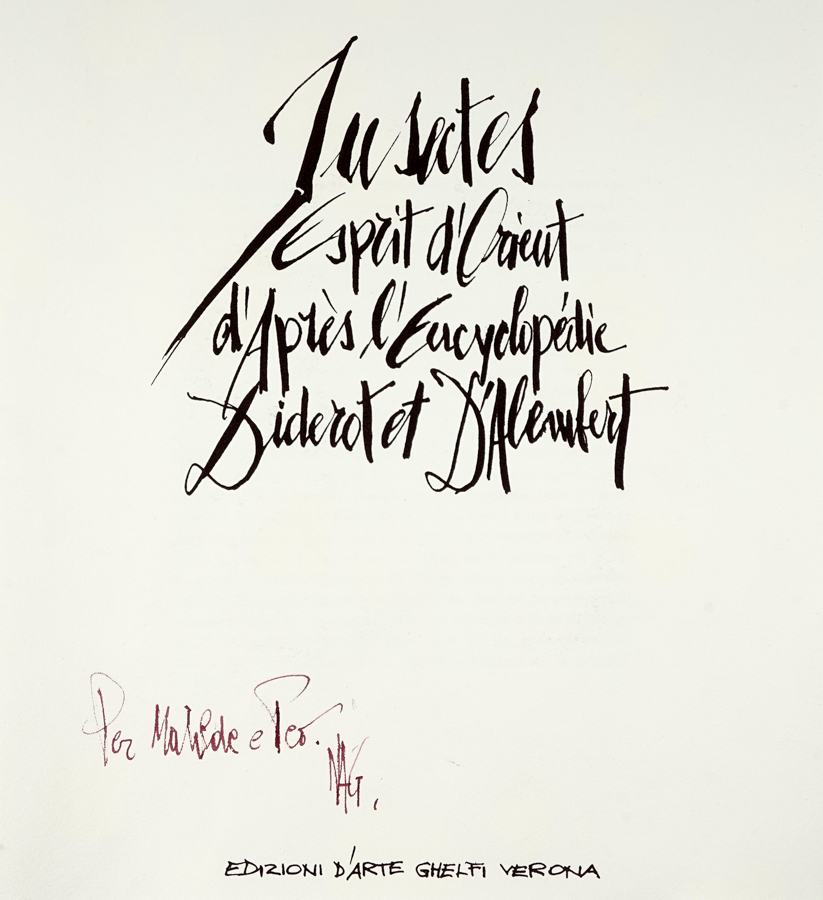 Insectes
Esprit d'Orient
d'Après l'Encyclopédie
Diderot et D'Alembert
Per Matilde e Teo.
NAG.
EDIZIONI D'ARTE GHELFI VERONA